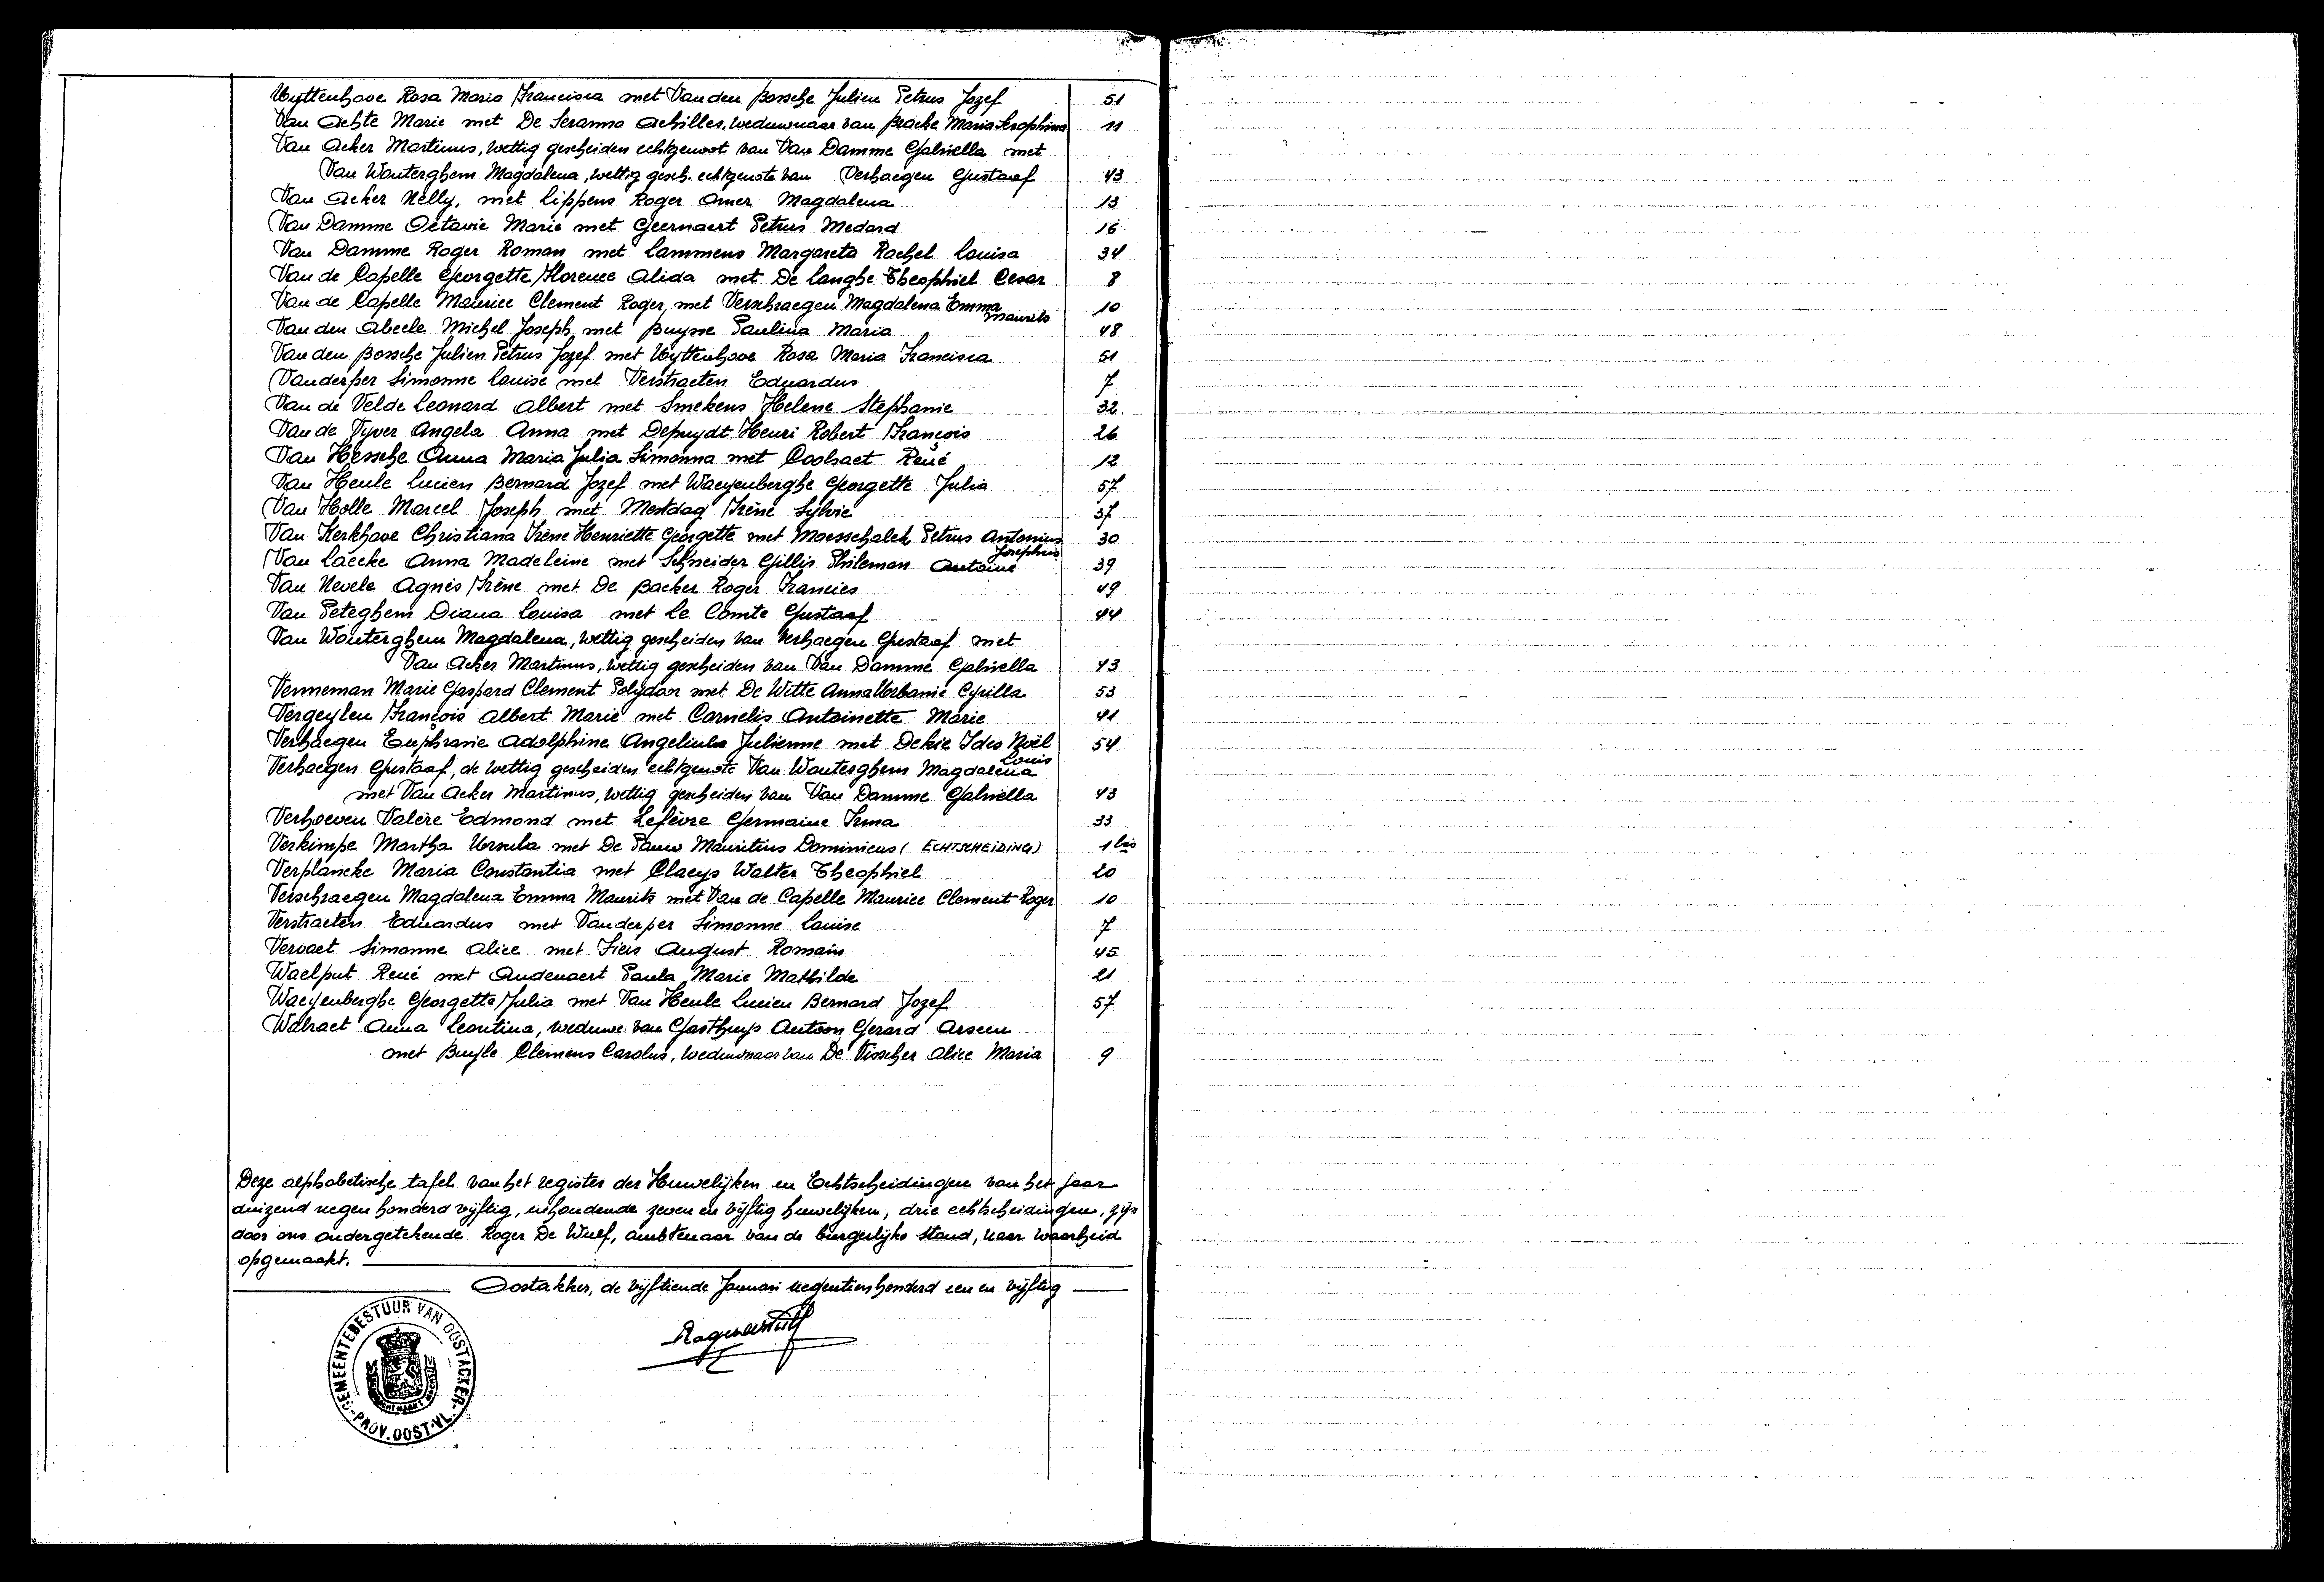 Uyttenhove Rosa Maria Francisca met Van den Bossche Julien Petrus Jozef 51
Van Achte Marie met De Seranno Achilles, weduwnaar van Bracke Maria Seraphina 11
Van Acker Martinus, wettig gescheiden echtgenoot van Van Damme Gabriella met
Van Wouterghem Magdalena, wettig gesch. echtgenote van Verhaegen Gustaaf 43
Van Acker Nelly, met Lippens Roger Omer Magdalena 13
Van Damme Octavie Marie met Geernaert Petrus Medard 16
Van Damme Roger Roman met Lammens Margareta Rachel Louisa 34
Van de Capelle Georgette Florence Alida met De Langhe Theophiel Cesar 8
Van de Capelle Maurice Clement Roger, met Verschraegen Magdalena Emma Maurits 10
Van den Abeele Michel Joseph, met Buysse Paulina Maria 48
Van den Bossche Julien Petrus Jozef met Uyttenhove Rosa Maria Francisca 51
Vanderper Simonne Louise met Verstraeten Eduardus 7
Van de Velde Leonard Albert met Smekens Helene Stephanie 32
Van de Vyver Angela Anna met Depuydt Henri Robert François 26
Van Hessche Anna Maria Julia Simonna met Coolsaet René 12
Van Heule Lucien Bernard Jozef met Waeyenberghe Georgette Julia 57
Van Holle Marcel Joseph met Mestdag Irène Sylvie 37
Van Kerkhove Christiana Irène Henriette Georgette met Maesschalck Petrus Antonius Josephus 30
Van Laecke Anna Madeleine met Schneider Gillis Philemon Antoine 39
Van Nevele Agnès Irène met De Backer Roger Francies 49
Van Peteghem Diana Louisa met Le Comte Gustaaf 44
Van Wouterghem Magdalena, wettig gescheiden van Verhaegen Gustaaf met
Van Acker Martinus, wettig gescheiden van Van Damme Gabriella 43
Venneman Marie Gaspard Clement Polydoor met De Witte Anna Urbanie Cyrilla 53
Vergeylen François Albert Marie met Cornelis Antoinette Marie 41
Verhaegen Euphrasie Adolphine Angelina Julienne met Dekie Ides Noël Louis 54
Verhaegen Gustaaf, de wettig gescheiden echtgenote Van Wouterghem Magdalena
met Van Acker Martinus, wettig gescheiden van Van Damme Gabriella 43
Verhoeven Valère Edmond met Lefèvre Germaine Irma 33
Verkimpe Martha Ursula met De Pauw Mauritius Dominicus (ECHTSCHEIDING) 1 bis
Verplancke Maria Constantia met Claeys Walter Theophiel 20
Verschraegen Magdalena Emma Maurits met Van de Capelle Maurice Clement Roger 10
Verstraeten Eduardus met Vanderper Simonne Louise 7
Vervaet Simonne Alice met Fiers August Romain 45
Waelput René met Audenaert Paula Marie Mathilde 21
Waeyenberghe Georgette Julia met Van Heule Lucien Bernard Jozef 57
Walraet Anna Leontina, weduwe van Gasthuys Antoon Gerard Arseen
met Buyle Clemens Carolus, weduwnaar van De Visscher Alice Maria 9
Deze alphabetische tafel van het register der Huwelijken en Echtscheidingen van het jaar
duizend negen honderd vijftig, inhoudende zeven en vijftig huwelijken, drie echtscheidingen, zijn
door ons ondergetekende Roger De Wulf, ambtenaar van de burgerlijke stand, naar waarheid
opgemaakt.
Oostakker, de vijftiende Januari negentienhonderd een en vijftig
GEMEENTEBESTUUR VAN OOSTACKER
PROV. OOST-VL.